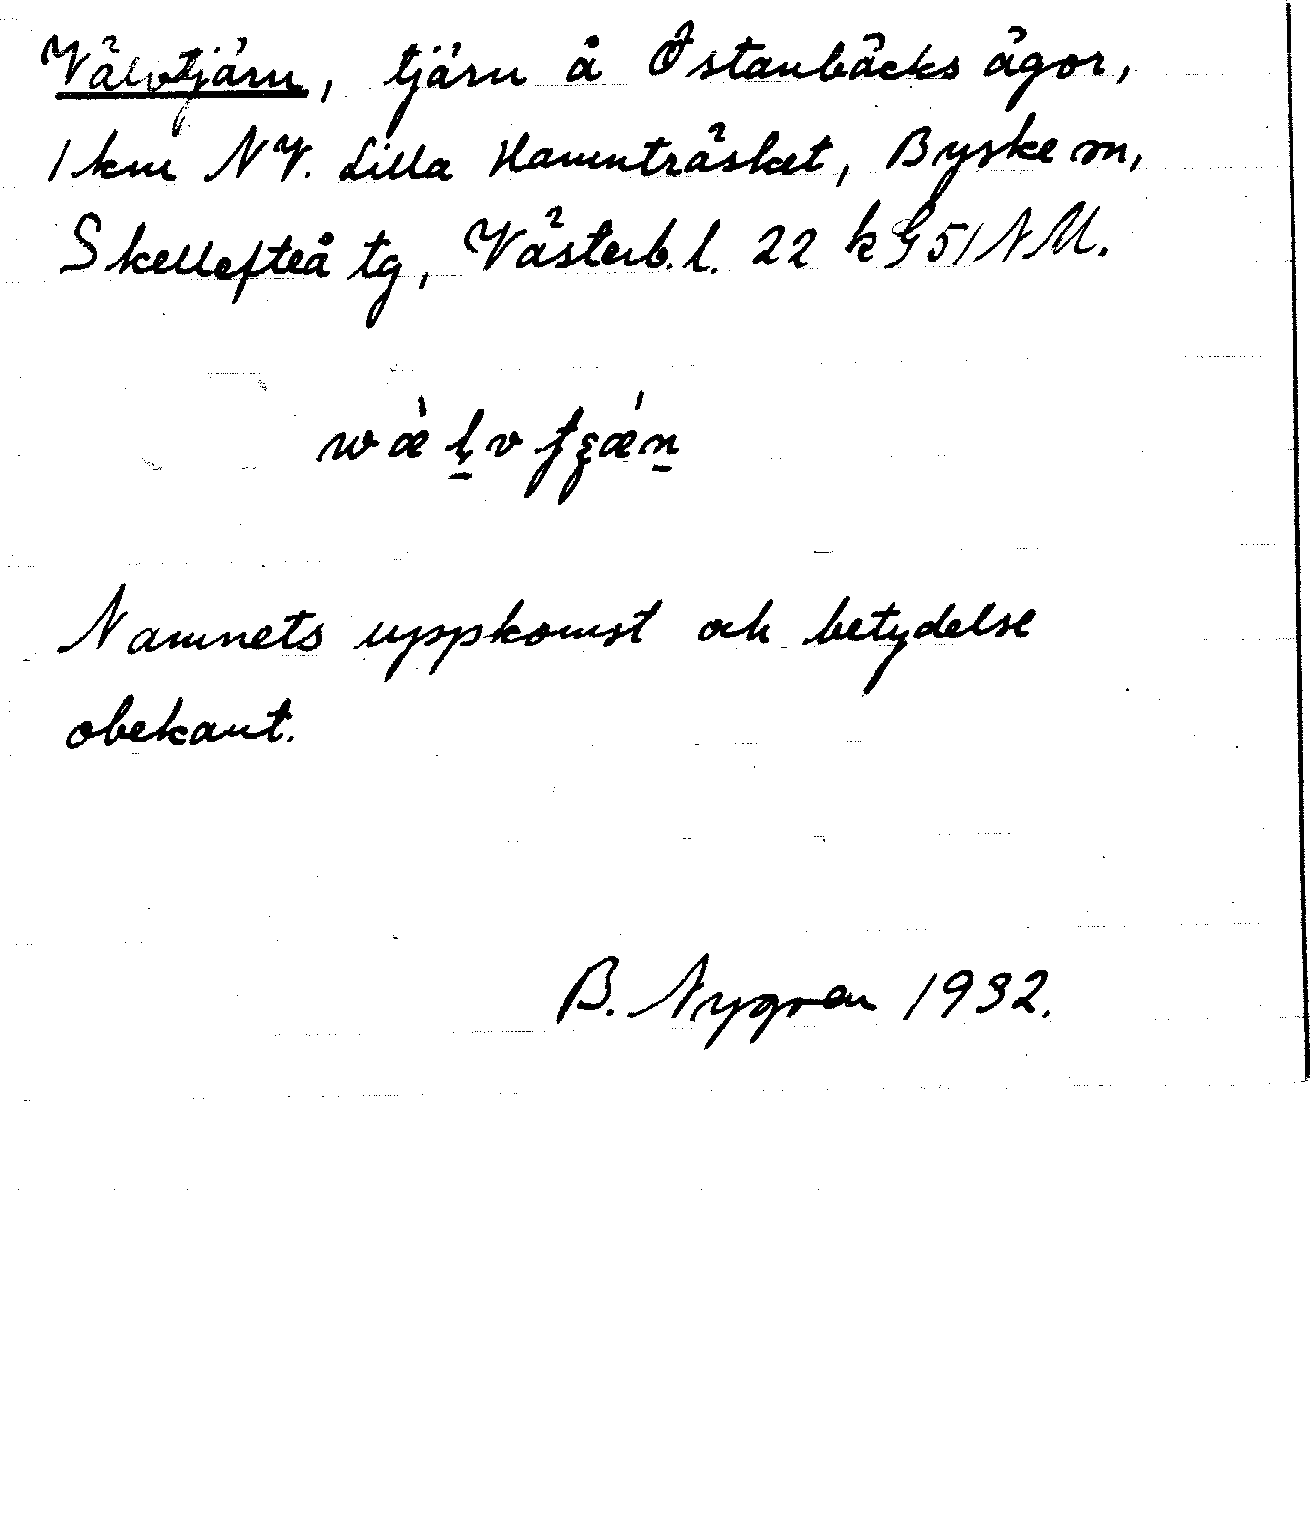 Välvtjärn, tjärn å Östanbäcks ägor,
1 km NV. Lilla Hamnträsket, Byske sn,
Skellefteå tg, Västerb. l. 22 k G 51 NM.
Namnets uppkomst och betydelse
obekant.
B. Nygren 1932.